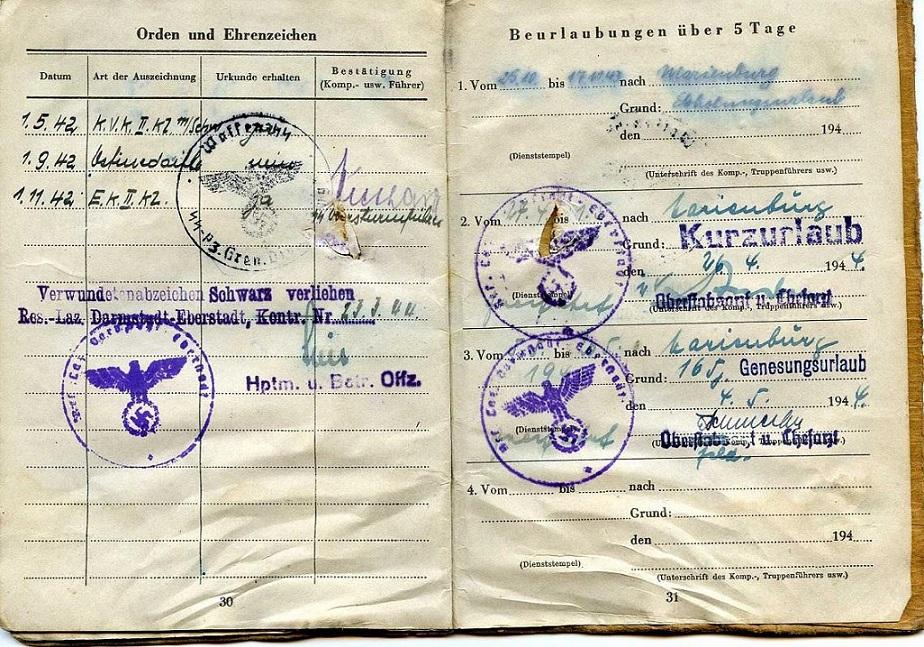 Orden und Ehrenzeichen
Datum
Art der Auszeichnung
Urkunde erhalten
Bestätigung
(Komp.- usw. Führer)
1.5.42 K.V.K II. Kl. m/Schw
1.9.42
1.11.42 E.K. II. Kl.
Waffen-SS
SS-Pz.Gren.
Verwundetenabzeichen Schwarz verliehen
Res.-Laz. Darmstadt-Eberstadt, Kontr. Nr.
Hptm. u. Betr. Offz.
30
Beurlaubungen über 5 Tage
1. Vom 25.10 bis nach Marienburg
Grund: Erholungsurlaub
den 194
(Dienststempel)
(Unterschrift des Komp., Truppenführers usw.)
2. Vom bis nach Marienburg
Grund: Kurzurlaub
den 26. 4. 194 4.
(Dienststempel)
Oberstabsarzt u. Chefarzt
3. Vom bis nach Marienburg
Grund: Genesungsurlaub
den 4. 5. 194 4.
(Dienststempel)
Oberstabsarzt u. Chefarzt
4. Vom bis nach
Grund:
den 194
(Dienststempel)
(Unterschrift des Komp., Truppenführers usw.)
31